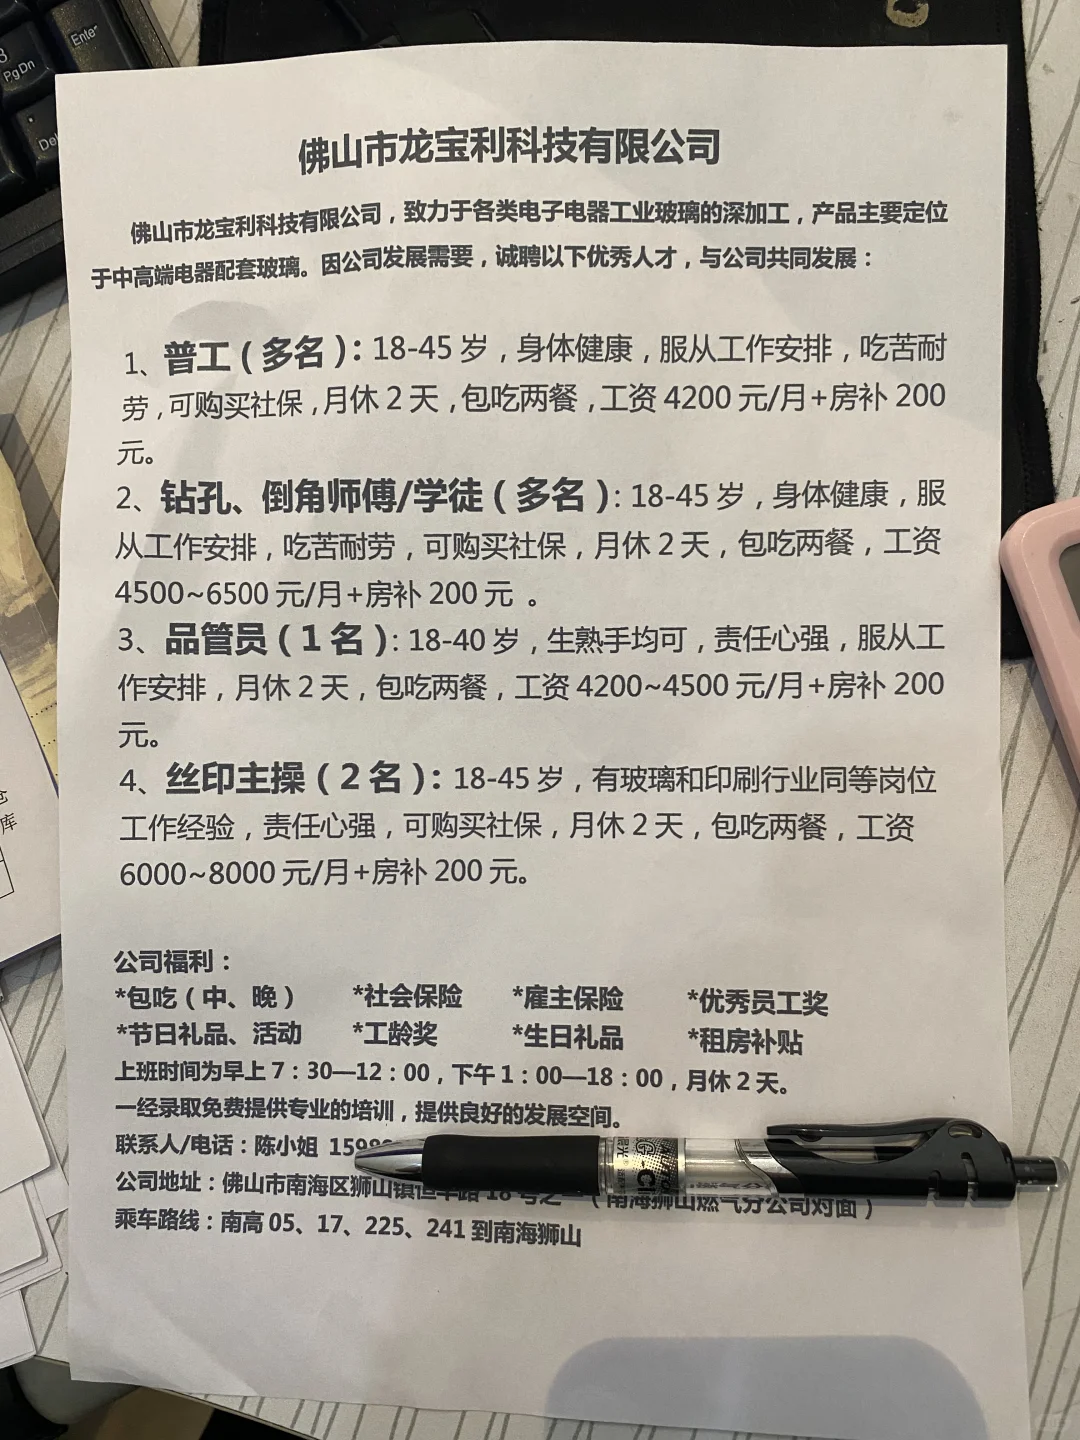 Enter
PgDn
佛山市龙宝利科技有限公司
佛山市龙宝利科技有限公司，致力于各类电子电器工业玻璃的深加工，产品主要定位
于中高端电器配套玻璃。因公司发展需要，诚聘以下优秀人才，与公司共同发展：
1、普工（多名）：18-45 岁，身体健康，服从工作安排，吃苦耐
劳，可购买社保，月休 2 天，包吃两餐，工资 4200 元/月+房补 200
元。
2、钻孔、倒角师傅/学徒（多名）：18-45 岁，身体健康，服
从工作安排，吃苦耐劳，可购买社保，月休 2 天，包吃两餐，工资
4500~6500 元/月+房补 200 元 。
3、品管员（1 名）：18-40 岁，生熟手均可，责任心强，服从工
作安排，月休 2 天，包吃两餐，工资 4200~4500 元/月+房补 200
元。
4、丝印主操（2 名）：18-45 岁，有玻璃和印刷行业同等岗位
工作经验，责任心强，可购买社保，月休 2 天，包吃两餐，工资
6000~8000 元/月+房补 200 元。
公司福利：
*包吃（中、晚） *社会保险 *雇主保险 *优秀员工奖
*节日礼品、活动 *工龄奖 *生日礼品 *租房补贴
上班时间为早上 7：30—12：00，下午 1：00—18：00，月休 2 天。
一经录取免费提供专业的培训，提供良好的发展空间。
联系人/电话：陈小姐 1598
公司地址：佛山市南海区狮山镇恒丰路 18 号之一（南海狮山燃气分公司对面）
乘车路线：南高 05、17、225、241 到南海狮山